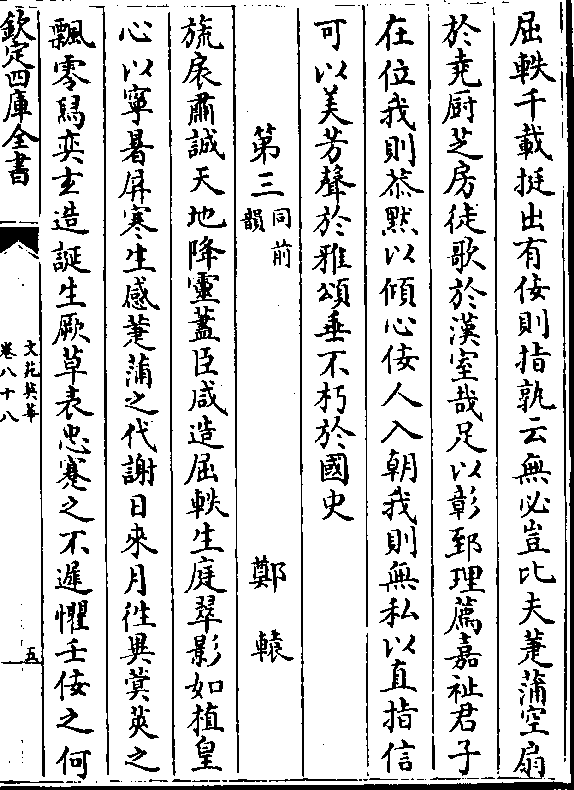 屈軼千載挺出有佞則指孰云無必豈比夫萐蒲空扇
於堯厨芝房徒歌於漢室哉足以彰郅理薦嘉祉君子
在位我則恭默以傾心佞人入朝我則無私以直指信
可以美芳聲於雅頌垂不朽於國史
第三同前韻 鄭轅
旒扆肅誠天地降靈蓋臣咸造屈軼生庭翠影如植皇
心以寧暑屏寒生感萐蒲之代謝日來月徃異蓂莢之
飄零舄奕玄造誕生厥草表忠蹇之不遲懼壬佞之何
欽定四庫全書
文苑英華
卷八十八
五